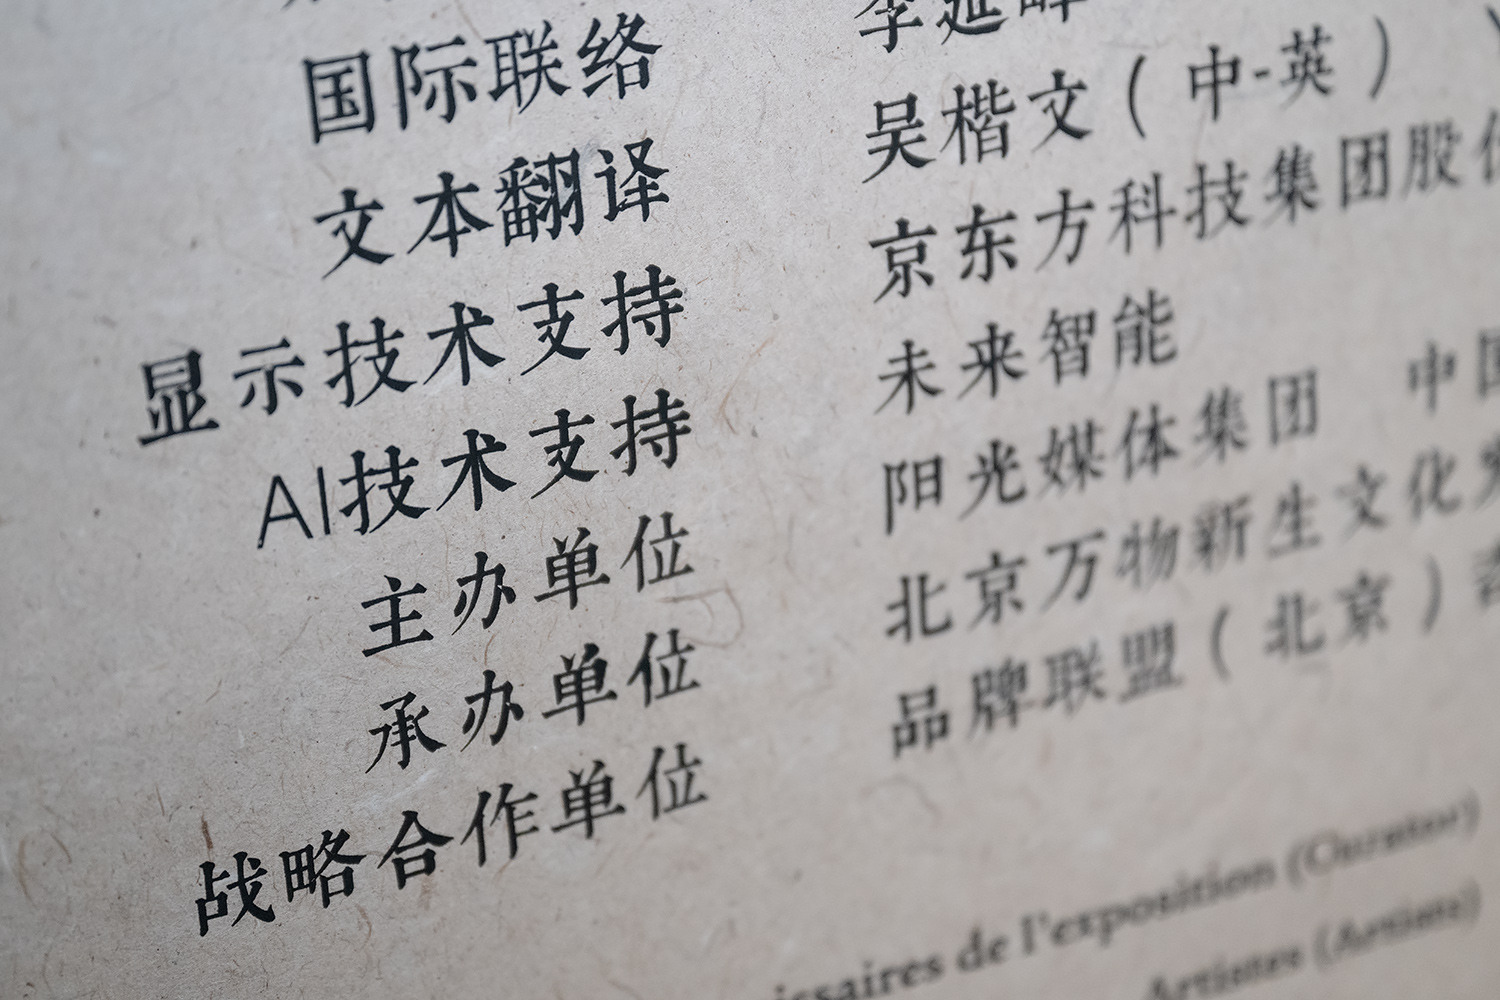 国际联络 李延峰
文本翻译 吴楷文（中-英）
显示技术支持 京东方科技集团股份
AI技术支持 未来智能
主办单位 阳光媒体集团 中国
承办单位 北京万物新生文化
战略合作单位 品牌联盟（北京）
issaires de l'exposition (Curator)
Artistes (Artists)